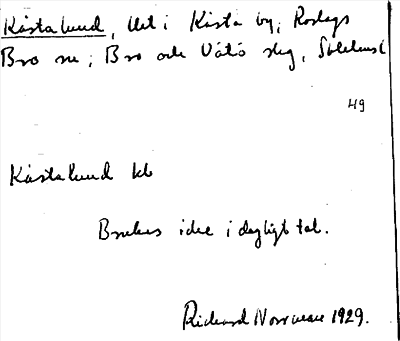 Kåstalund, lht i Kåsta by, Roslags
Bro sn; Bro och Vätö skg, Sthlms l
49
Kåstalund kb
Brukas icke i dagligt tal.
Rickard Norrman 1929.